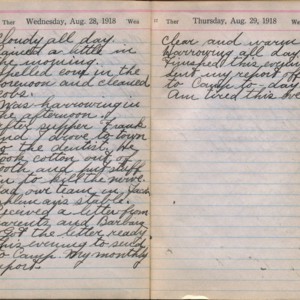 Ther Wednesday, Aug. 28, 1918 Wea
Cloudy all day
rained a little in
the morning.
Shelled corn in the
forenoon and cleaned
cobs.
Was harrowing in
the afternoon.
After supper Frank
and I drove to town
to the dentist. He
took cotton out of
tooth and put stuff
in to kill the nerve.
Had our team in
stable.
Received a letter from
parents and Barbara
Got the letter ready
this evening to send
to Camp. My monthly
report.
Ther Thursday, Aug. 29, 1918 Wea
Clear and warm
Harrowing all day
Finished this
Sent my report off
to Camp to day
Am tired this